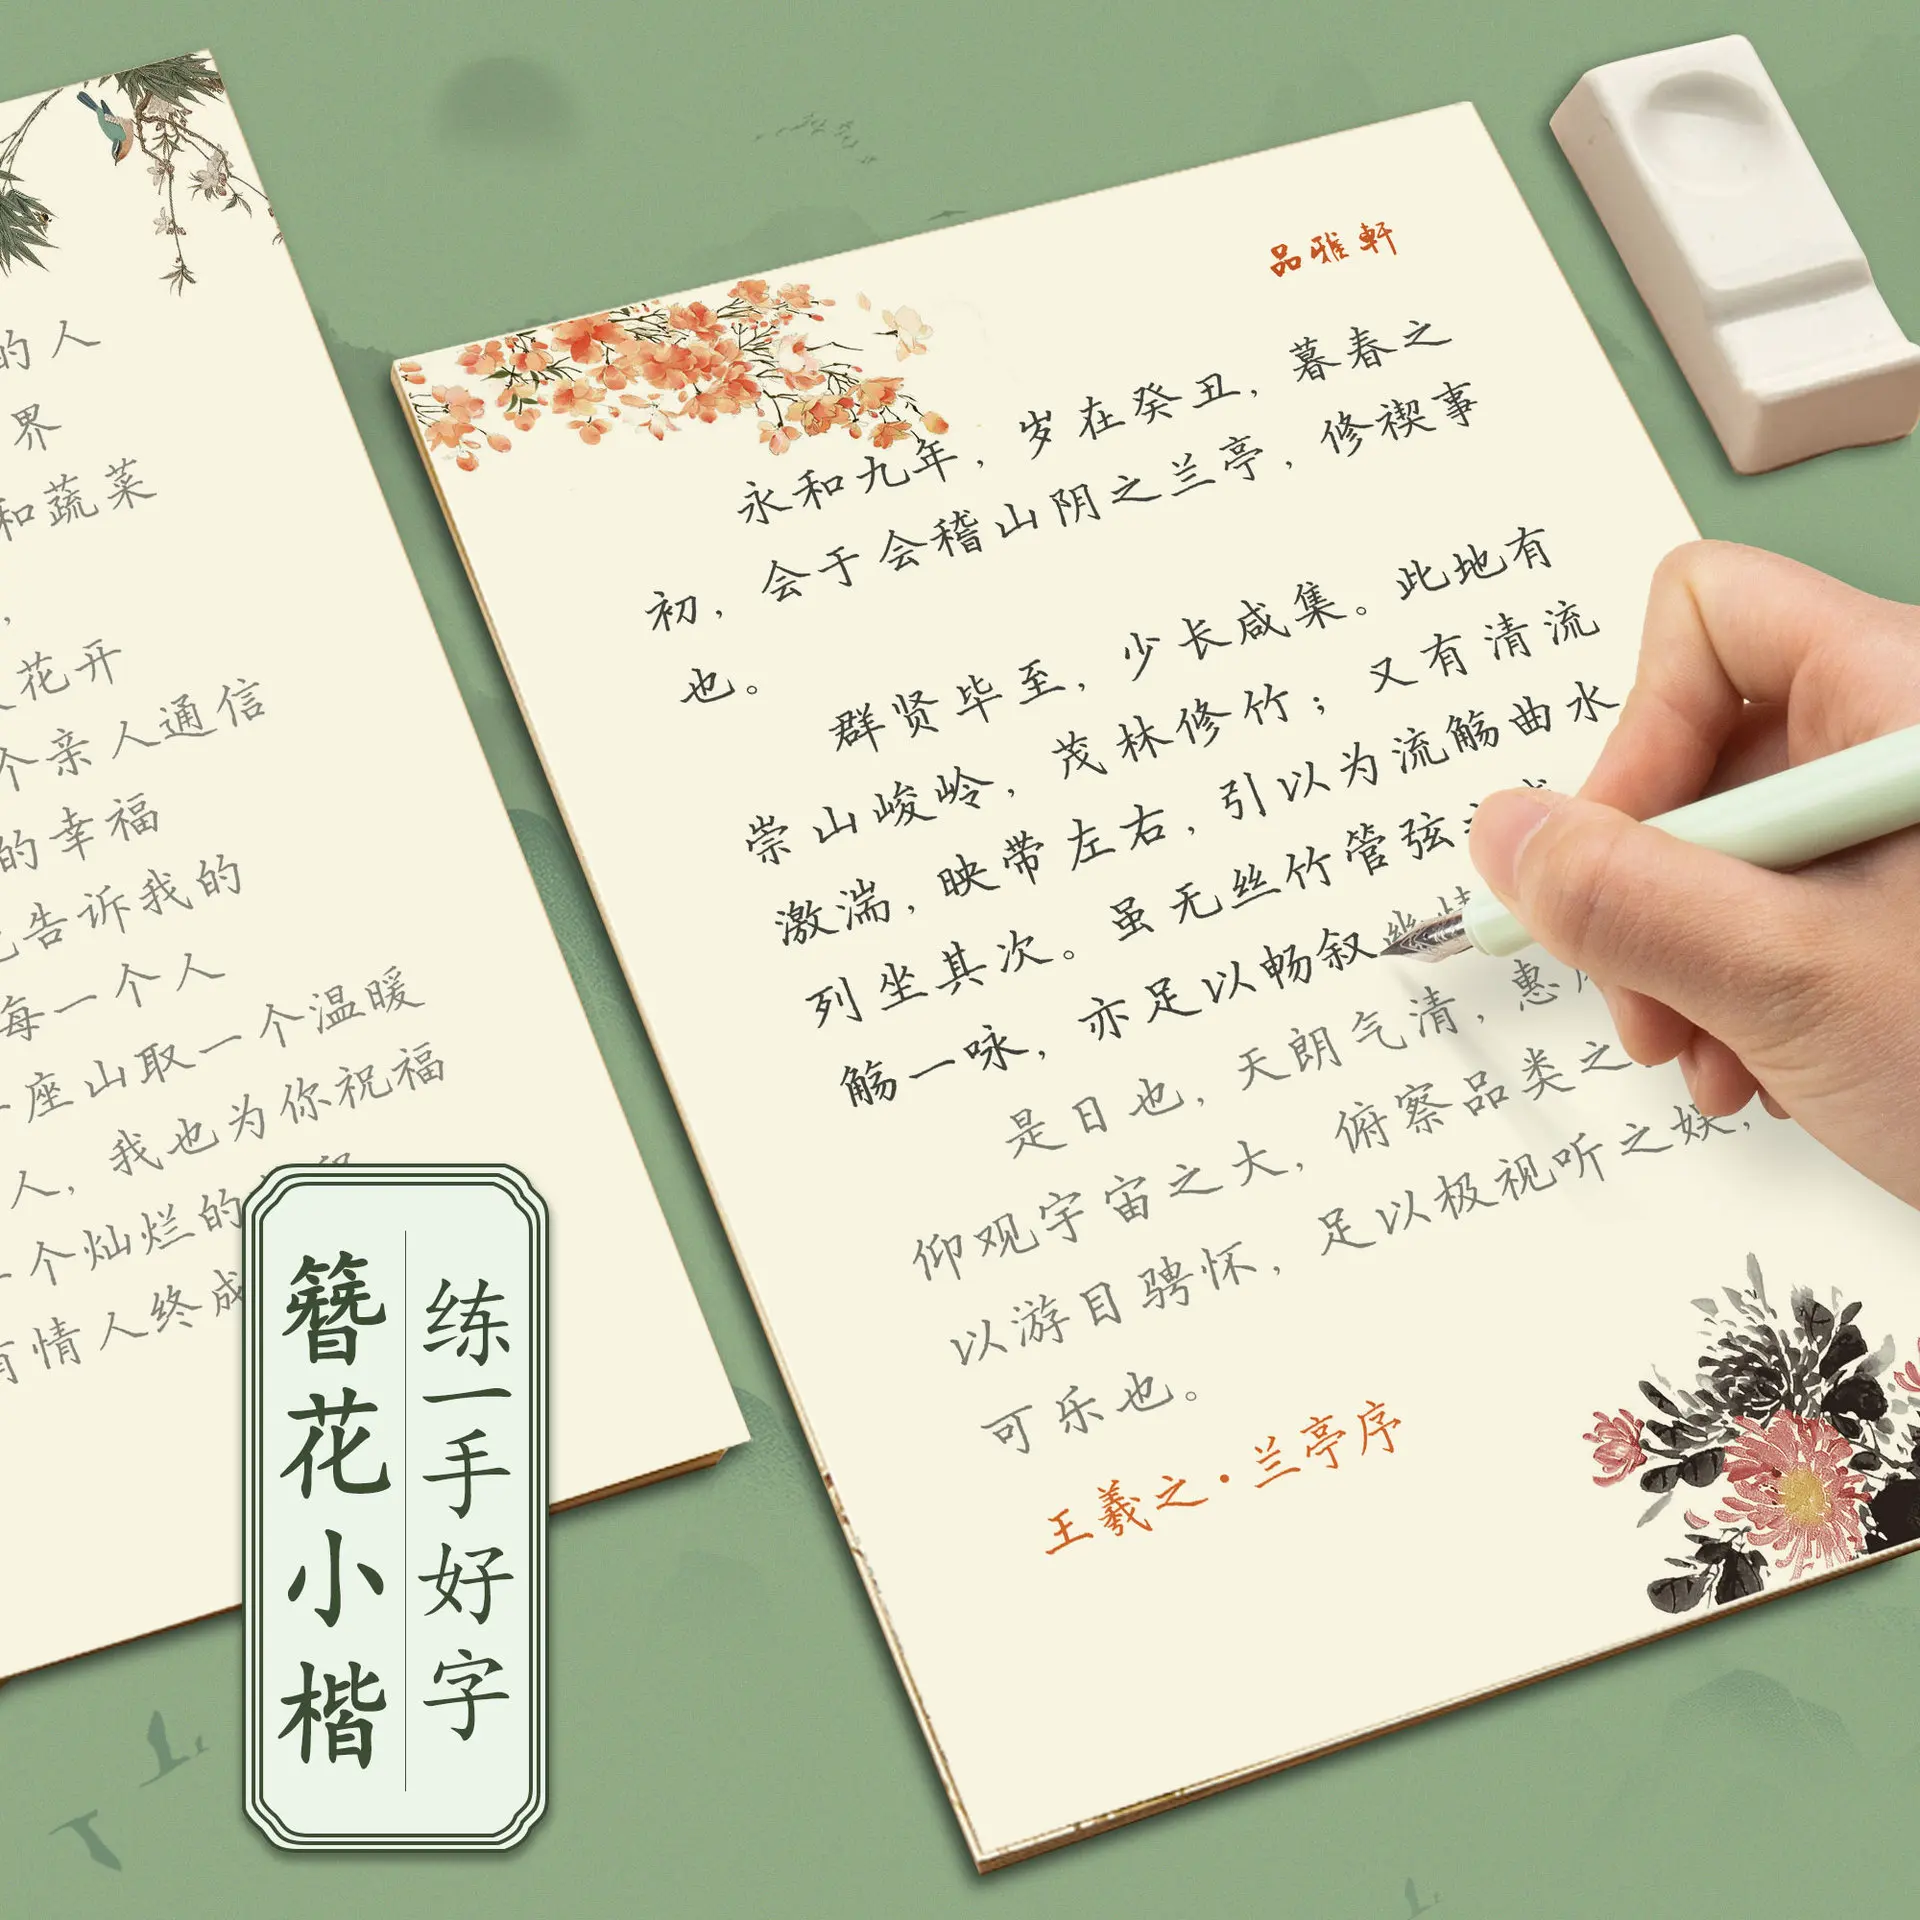 的人
界
和蔬菜
，
花开
个亲人通信
的幸福
告诉我的
每一个人
座山取一个温暖
人，我也为你祝福
一个灿烂的
有情人终成
品雅軒
永和九年，岁在癸丑，暮春之
初，会于会稽山阴之兰亭，修禊事
也。
群贤毕至，少长咸集。此地有
崇山峻岭，茂林修竹；又有清流
激湍，映带左右，引以为流觞曲水
列坐其次。虽无丝竹管弦
觞一咏，亦足以畅叙幽情
是日也，天朗气清，惠
仰观宇宙之大，俯察品类之
以游目骋怀，足以极视听之娱，
可乐也。
王羲之·兰亭序
练一手好字
簪花小楷